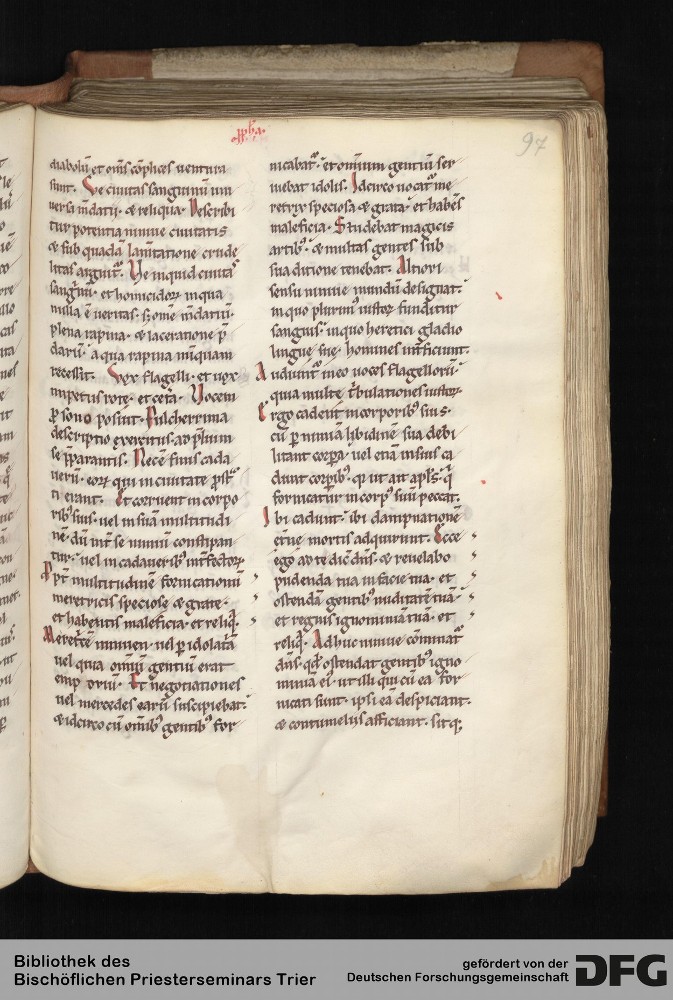 97
diabolū et om̄s cōplices ventura
sunt. Ve ciuitas sanguinū uni
uersa mdatii. & reliqua. Describi
tur potentia niniue ciuitatis
& sub quadā lam̄tatione crude
litas arguit᷑. Ve inquid ciuitas
sanḡnū. et homicidoꝝ in qua
nulla ē veritas. s; om̄e m̄datiū.
plena rapina. & laceratione p̄
darū. a qua rapina nūquam
recessit. Vox flagelli. et vox
impetus rote. et cet̄a. Vocem
ꝓ sono posuit. Pulcherrima
descriptio exercitus. ad p̄lium
se p̄parantis. Necē finis cada
uerū. eoꝝ qui in ciuitate ꝓst᷑
ti erant. Et corruent in corpo
ribꝰ suis. uel in suā multitudi
nē. dū int̄ se nimiū constipan
tur. uel in cadaueribꝰ int̄fectoꝝ.
Ppt̄ multitudinē fornicationū
meretricis speciose & grate.
et habentis maleficia. et reliq̄.
Meret̄cē niniuen. uel ꝑ idolat̄ā
uel quia om̄iū gentiū erat
emporiū. Et negotiationes
uel mercedes earū suscipiebat.
& idcirco cū om̄ibꝰ gentibꝰ for
nicabat᷑. et om̄ium gentiū ser
uiebat idolis. Idcirco uocat᷑ me
retrix speciosa & grata. et habēs
maleficia. Studebat magicis
artibꝰ. & multas gentes sub
sua ditione tenebat. Altiori
sensu niniue mundū designat.
in quo plurimꝰ iustoꝝ funditur
sanguis. in quo heretici gladio
lingue sue. homines int̄ficiunt.
Audiunt᷑ in eo uoces flagelloꝝ.
quia multe t̄bulationes iustoꝝ.
Ergo cadent in corporibꝰ suis.
cū ꝑ nimiā libidinē sua debi
litant corpora. uel etiā in suis ca
dunt corporibꝰ. qui ut ait apl̄s.
fornicatur in corpꝰ suū peccat.
Ibi cadunt. ibi dampnationē
et̄ne mortis adquirunt. Ecce
ego ad te dic̄ dn̄s. & reuelabo
pudenda tua in facie tua. et
ostendā gentibꝰ nuditatē tuā.
et regnis ignominiā tuā. et
reliq̄. Adhuc niniue cōminat᷑
dn̄s. qd̄ ostendat gentibꝰ igno
miniā eiꝰ. ut illi qui cū ea for
nicati sunt. ipsi eā despiciant.
& contumeliis afficiant. sitq;
Bibliothek des
Bischöflichen Priesterseminars Trier
gefördert von der
Deutschen Forschungsgemeinschaft
DFG